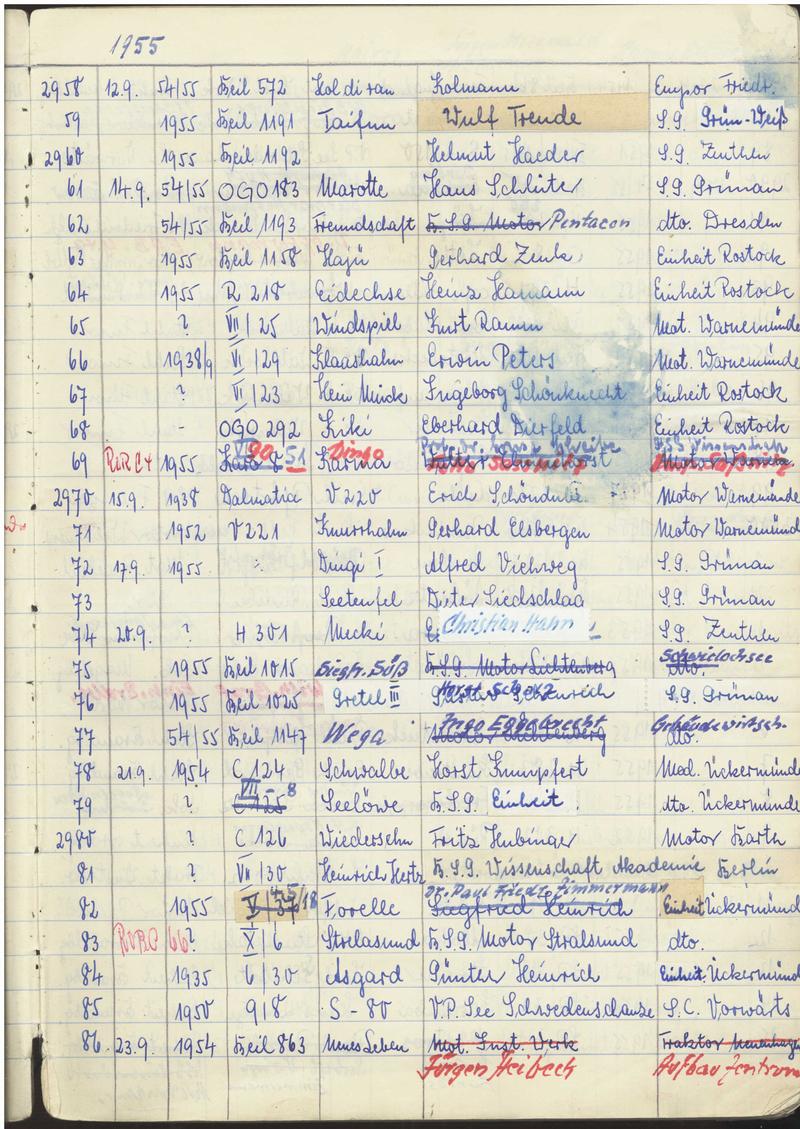 1955
2958 12.9. 54/55 Keil 572 Koldiran Kolmann Empor Friedr.
59 1955 Keil 1191 Taifun Wulf Trende S.G. Grün-Weiß
2960 1955 Keil 1192 Helmut Haeder S.G. Zeuthen
61 14.9. 54/55 OGO 183 Marotte Hans Schlüter S.G. Grünau
62 54/55 Keil 1193 Freundschaft B.S.G. Motor Pentacon dto. Dresden
63 1955 Keil 1158 Hajü Gerhard Zenk Einheit Rostock
64 1955 R 218 Eidechse Heinz Hamann Einheit Rostock
65 ? VII/25 Windspiel Kurt Ramm Mot. Warnemünde
66 1938/9 VI/29 Klaashahn Erwin Peters Mot. Warnemünde
67 ? VI/23 Hein Mück Ingeborg Schönknecht Einheit Rostock
68 - OGO 292 Kiki Eberhard Dierfeld Einheit Rostock
69 1955 51 Karina Dingo
2970 15.9. 1938 Dalmatia V 220 Erich Schöndube Motor Warnemünde
71 1952 V 221 Knurrhahn Gerhard Elsbergen Motor Warnemünd
72 17.9. 1955 Dingi I Alfred Viehweg S.G. Grünau
73 Seeteufel Dieter Siedschlag S.G. Grünau
74 20.9. ? H 301 Mecki Christian Hahn S.G. Zeuthen
75 1955 Keil 1015 Siegfr. Süß B.S.G. Motor Lichtenberg Schwielochsee dto.
76 1955 Keil 1025 Gretel III Horst S.G. Grünau
77 54/55 Keil 1147 Wega Ingo Eggebrecht Motor Lichtenberg Gebäudewirtsch. dto.
78 21.9. 1954 C 124 Schwalbe Horst Kumpfert Med. Ückermünde
79 ? C 125 VII 8 Seelöwe B.S.G. Einheit dto. Ückermünde
2980 ? C 126 Wiedersehn Fritz Hubinger Motor Barth
81 ? VII/30 Heinrich Hertz B.S.G. Wissenschaft Akademie Berlin
Dr. Paul Friedr. Zimmermann
82 1955 V/37 Forelle Siegfried Heinrich Einheit Ückermünd
83 ? X/6 Strelasund B.S.G. Motor Stralsund dto.
84 1935 6/30 Asgard Günter Heinrich Einheit Ückermünd
85 1950 9/8 S-80 V.P. See Schwedenschanze S.C. Vorwärts
86. 23.9. 1954 Keil 863 Neues Leben Mot. Inst. Werk Traktor
Jürgen Heibeck Aufbau Zentrum